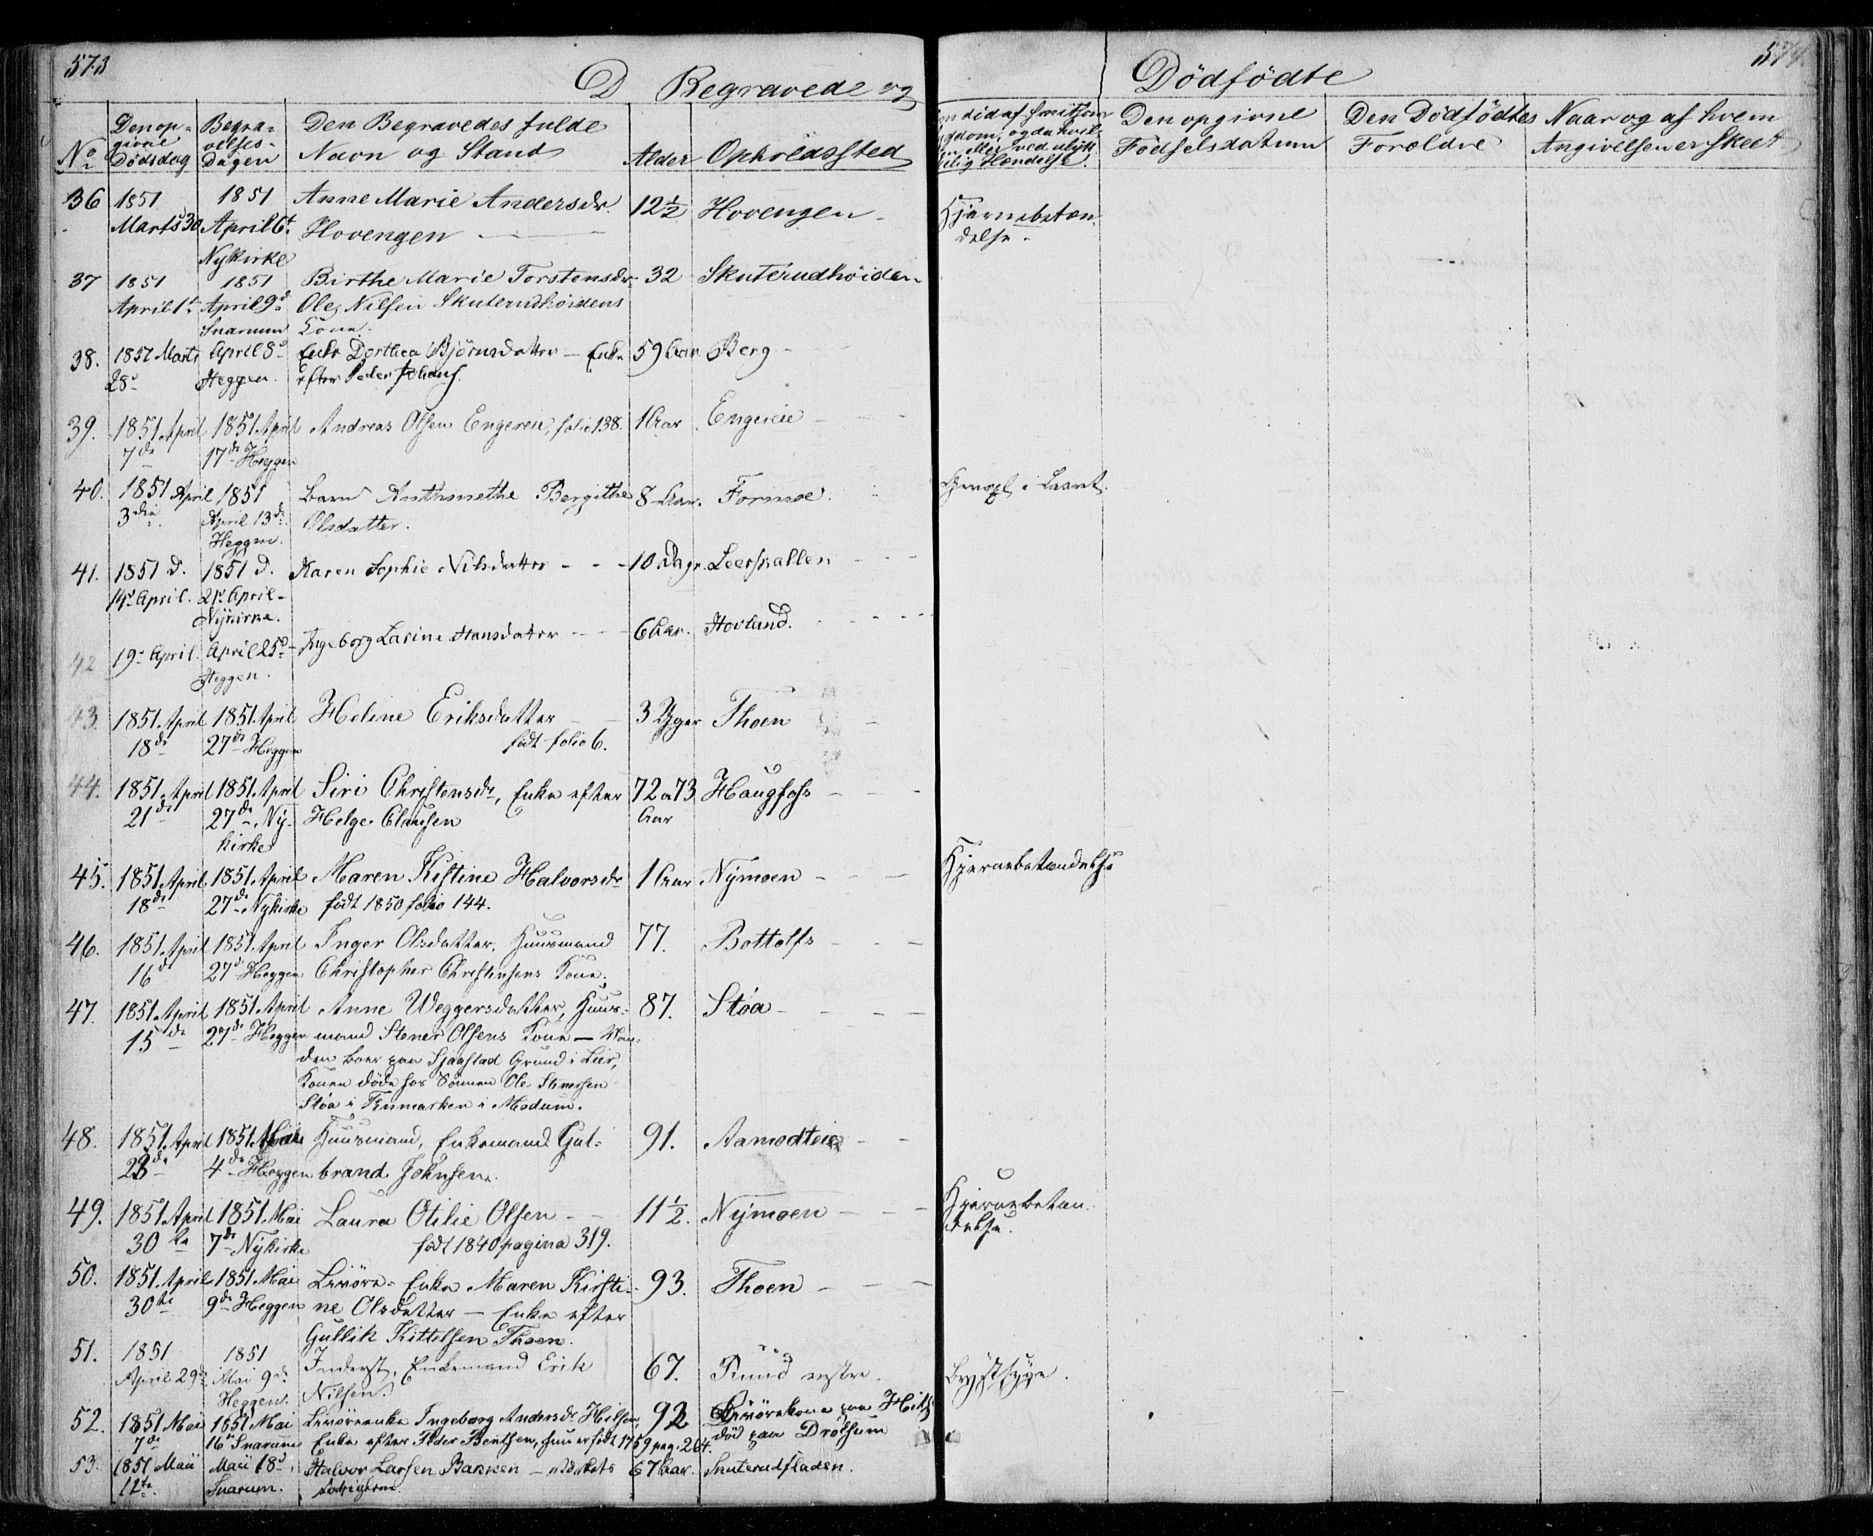 573
574
D Begravede og Dödfödte
No
Den opgivne Dødsdag
Begravelses-Dagen
Den Begravedes fulde Navn og Stand
Alder
Opholdssted
Den opgivne Födselsdatum
Den Dödfödtes Forældre
Naar og af hvem Angivelsen er Skeet
36 1851 1851 Anne Marie Andersdr. 12½ Hovengen Hjernebetæn-
Marts 30 April 6t Hovengen delse
Nykirke
37 1851 1851 Birthe Marie Torstensdr 32 Skuterudhöiden
April 1t April 9d Ole Nilsen Skuterudhöidens
Snarum Kone.
38. 1851 Marts April 8d Enke Dorthea Björnsdatter - Enke 59 Aar Berg
28d Heggen. efter Peder
39. 1851 April 1851 April Andreas Olsen Engereie, folio 138. 1 Aar Engereie
7de 17de Heggen
40. 1851 April 1851 Barn Anthonethe Bergithe 8 Aar. Formoe.
3die April 13de Olsdatter.
Heggen.
41. 1851 d. 1851 d. Karen Sophie Nilsdatter - - - 10 Dage. Leerskallen
14d April. 21d April
Nykirke.
42 19d April April 25d Ingeborg Larine Hansdatter 6 Aar. Hovland.
Heggen.
43. 1851 April 1851 April Helene Eriksdatter 3 Uger Thoen
18de 27de Heggen födt folio 6.
44. 1851 April 1851 April Siri Christensdr, Enke efter 72 a 73 Haugfoss
21de 27de Ny- Helge Clausen Aar
kirke
45. 1851 April 1851 April Maren Kistine Halvorsdr 1 Aar Nymoen Hjernebetændelse
18de 27de Nykirke födt 1850 folio 144.
46. 1851 April 1851 April Inger Olsdatter, Huusmand 77. Bottolfs
16de 27d Heggen Christopher Christensens Kone.
47. 1851 April 1851 April Anne Weggersdatter, Huus- 87. Stöa
15de 27de Heggen mand Stener Olsens Kone - Man-
den boer paa Sjaastad Grund i Lier,
Konen döde hos Sönnen Ole Stenersen
Stöa i Finmarken i Modum.
48. 1851 April 1851 Mai Huusmand, Enkemand Gul- 91. Aamodteie
23de 4de Heggen brand Johnsen.
49. 1851 April 1851 Mai Laura Otilie Olsen 11½. Nymoen Hjernebetæn-
30te 7de Nykirke födt 1840 pagina 319. delse.
50. 1851 April 1851 Mai Livöre-Enke Maren Kirsti- 93. Thoen
30te 9de Heggen ne Olsdatter - Enke efter
Gullik Kittelsen Thoen.
51. 1851 1851 Inderst, Enkemand Erik 67. Ruud vestre. Brystsyge.
April 29de Mai 9de Nilsen.
Heggen.
52. 1851 Mai 1851 Mai Livöreenke Ingeborg Andersdr Hilsen, 92 Livörekone paa Hilsen
7de 16de Snarum Enke efter Peder Bentsen, hun er födt 1759 pag. 264. död paa Drolsum
53. 1851 Maii Maii 18d Halvor Larsen Bakken - 67 Aar. Skuterudfladen.
12te Snarum.